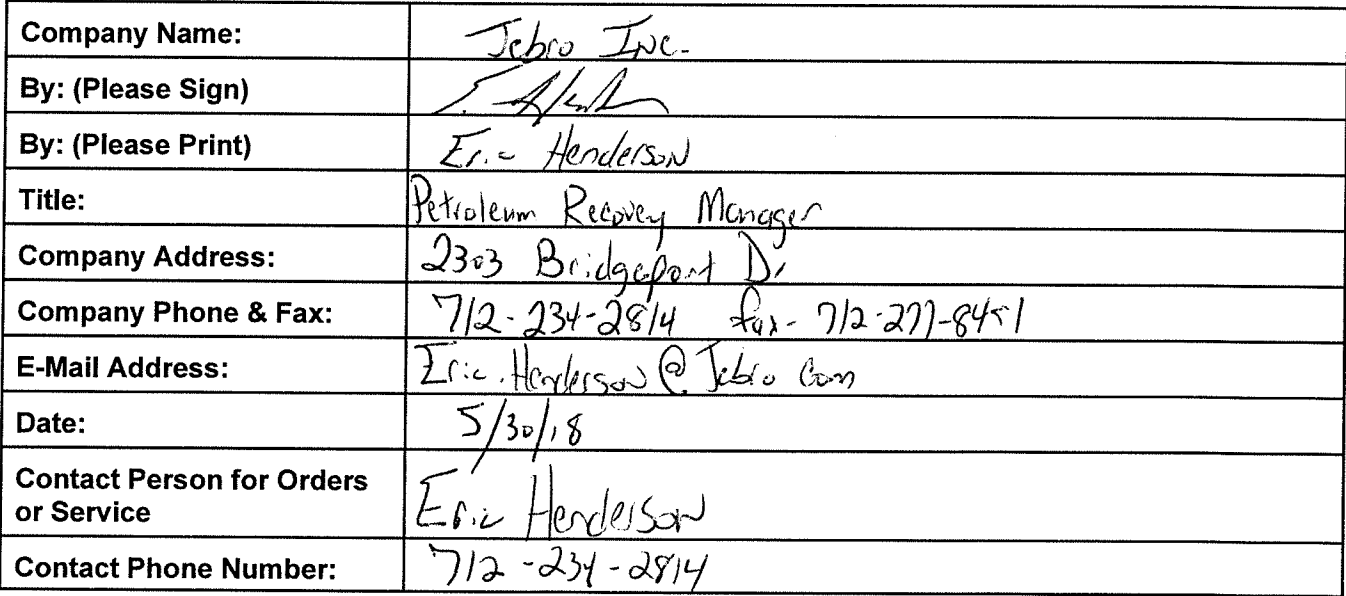 Company Name: Jebro Inc.
By: (Please Sign)
By: (Please Print) Eric Henderson
Title: Petroleum Recovery Manager
Company Address: 2303 Bridgeport Dr
Company Phone & Fax: 712-234-2814 fax- 712-277-8451
E-Mail Address: Eric.Henderson@Jebro.com
Date: 5/30/18
Contact Person for Orders
or Service Eric Henderson
Contact Phone Number: 712-234-2814